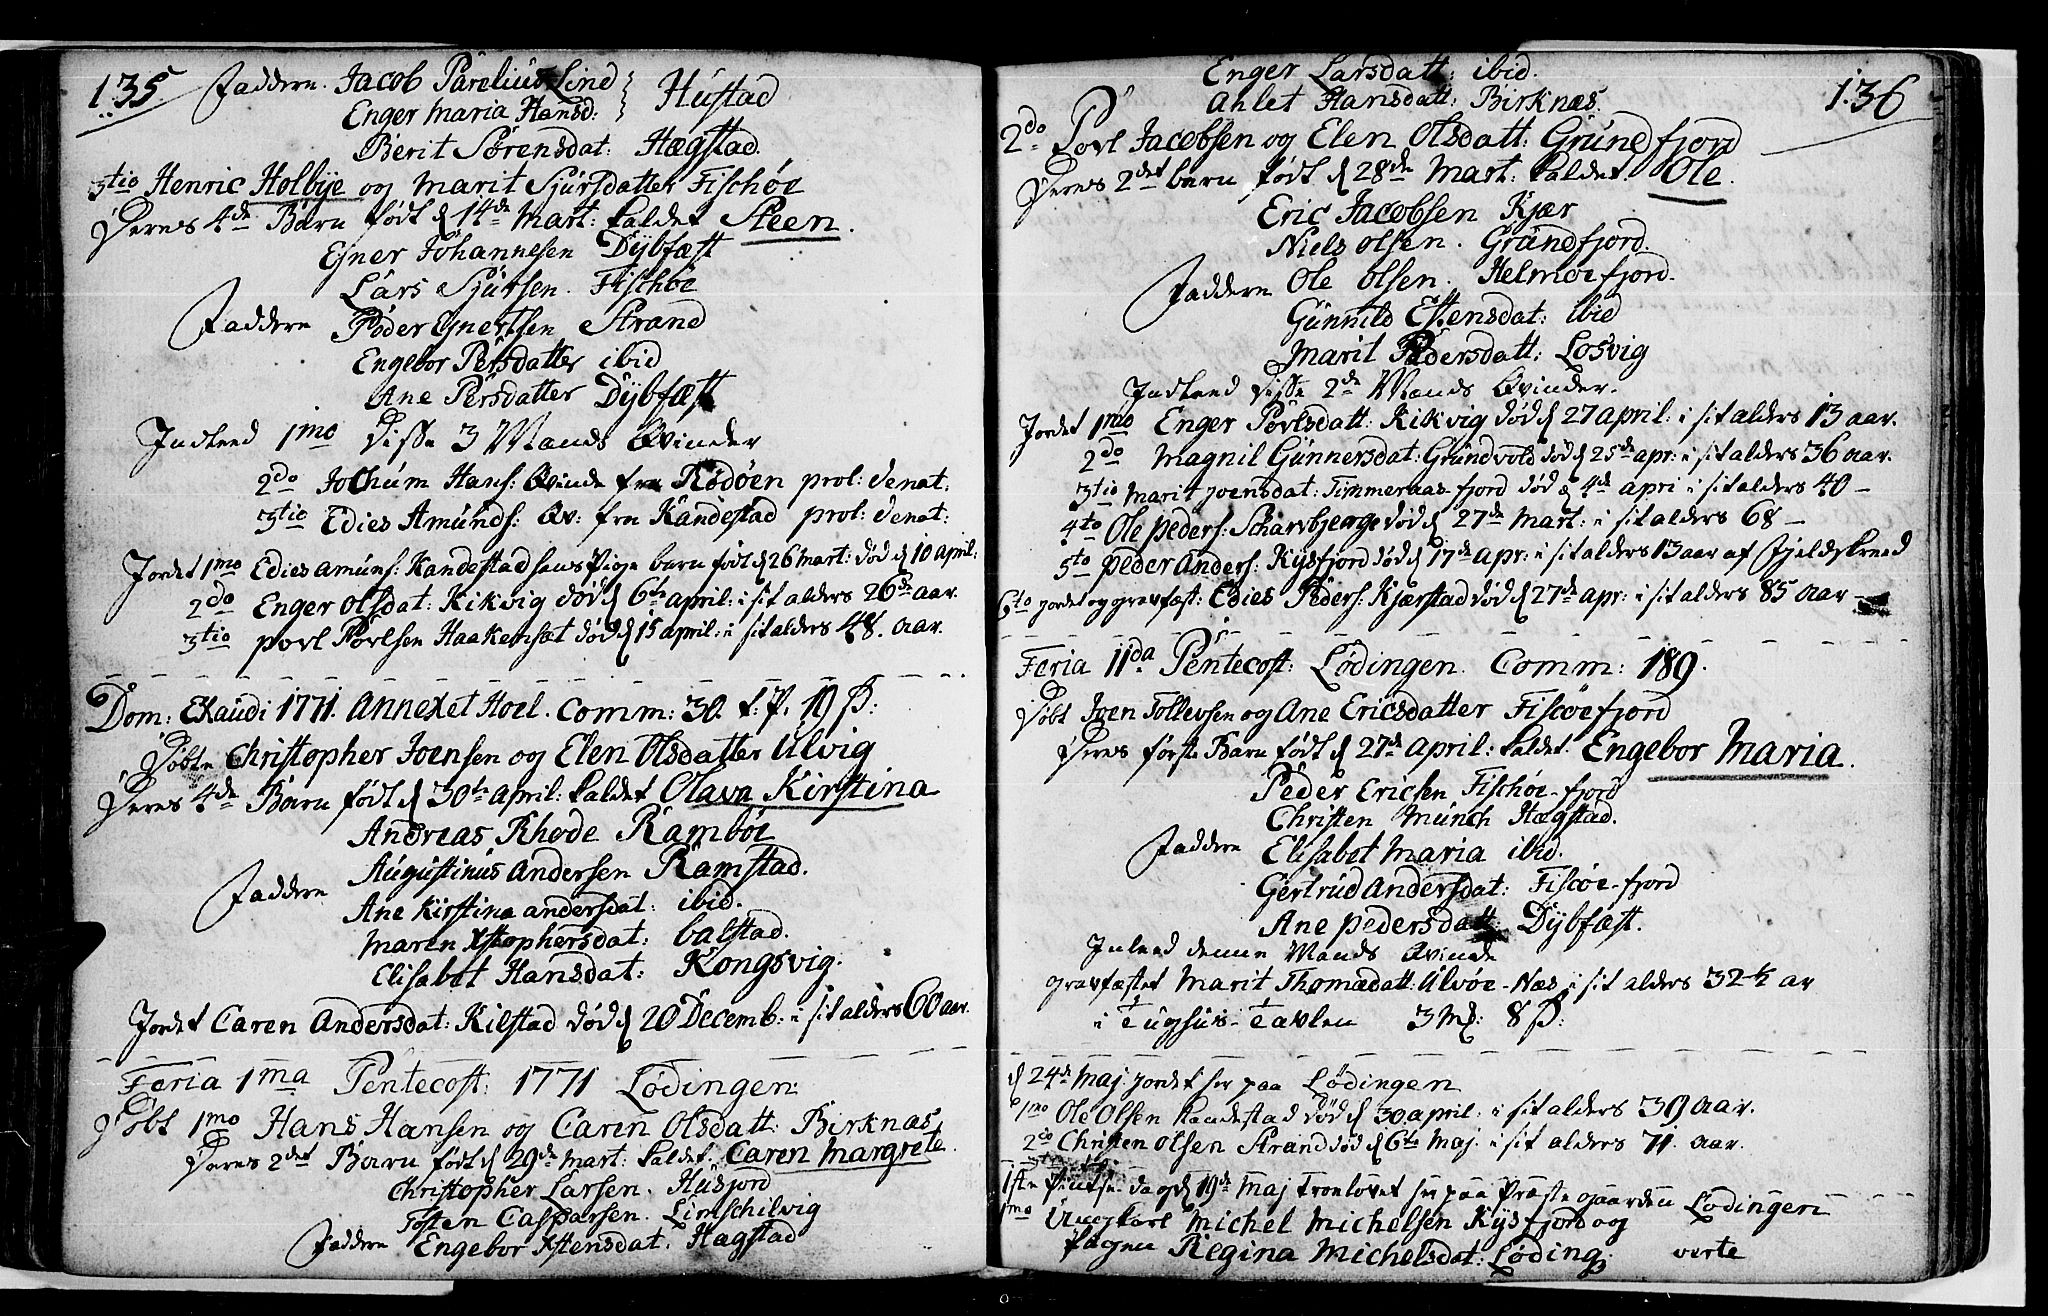 135
Faddere Jacob Parelius Lind } Hustad
Enger Maria Hansd:
Berit Sørensdat: Hægstad.
3tio Henric Holbye og Marit Sjursdatter Fischøe
Deres 4de Barn født d 14de Mart: kaldet Steen.
Ejner Johannesen Dÿbfæst
Lars Sjursen. Fischøe
Faddere Pöder Ejnertsen Strand
Engebor Persdatter ibid
Ane Persdatter Dÿbfæst
Indleed 1mo disse 3 Mands Qvinder
2do Jochum Hans: Qvinde fra Rödöen prol: denat:
3tio Edies Amunds: Qv: fra Kandestad prol: denat:
Jordet 1mo Edies Amuns: Kandestad hans Pige barn født d 26 Mart: død d 10 april:
2do Enger Olsdat: Kikvig død d 6te april: i sit alders 26de aar.
3tio Povl Povlsen Haakenset død d 15 april: i sit alders 48. aar.
Dom: Exaudi 1771. Annexet Hoel. Comm: 30. t: P. 19 ß:
Døbte Christopher Joensen og Elen Olsdatter Ulvig
Deres 4de Barn født d 30te april: kaldet Olava Kirstina
Andreas Rhode Ramböe
Augustinus Andersen Ramstad.
Faddere
Ane Kirstina andersdat: ibid.
Maren Xstophersdat: balstad.
Elisabet Hansdat: Kongsvig.
Jordet Caren Andersdat: Kilstad død d 20 Decemb: i sit alders 60 aar.
Feria 1ma Pentecost: 1771 Lødingen:
Døbt 1mo Hans Hansen og Caren Olsdatt: Birknæs
Deres 2det Barn født d 29de Mart: kaldet Caren Margrete.
Christopher Larsen. Husjord
Tosten Casparsen. Limschilvig
Faddere Engebor Xstensdat: Hægstad
136
Enger Larsdatt: ibid.
Ahlet Hansdatt: Birknæs.
2do Povl Jacobsen og Elen Olsdatt: Grundfjord
Deres 2det barn født d 28de Mart: kaldet Ole.
Eric Jacobsen Kjær
Niels Olsen. Grundfjord.
Faddere Ole Olsen. Helmoefjord.
Gunnild Estensdat: ibid
Marit Pedersdatt: Losvig
Indleed disse 2de Mands Qvinder.
Jordet 1mo Enger Povlsdatt: Kikvig død d 27 april: i sit alders 13 aar.
2do Magnil Gunnersdat: Grundvold død d 25de apr: i sit alders 36 aar.
3tio Marit Joensdat: Timmernæs-fjord død d 4de apri i sit alders 40 —
4to Ole Peders: Scharvbjerge død d 27de Mart: i sit alders 68 —
5to Peder Anders: Kysfjord død d 17de apr: i sit alders 13 aar af Fjeldskreed
6to jordet og gravfæst: Edies Peders: Kjærstad død d 27de apr: i sit alders 85 aar —
Feria 11da Pentecost: Lødingen. Comm: 189.
Døbt Joen Tollevsen og Ane Ericsdatter Fiscöefjord
Deres første Barn født d 27de april: kaldet Engebor Maria.
Peder Ericsen Fischöe-fjord
Christen Munch Hægstad.
Faddere Elisabet Maria ibid.
Gertrud Andersdat: Fiscöe-fjord
Ane Pedersdatt: Dÿbfæst.
Inleed denne Mands Qvinde
gravfæstet Marit Thomædatt: Ulvöe-Næs i sit alders 32 ½ ar
i Tugthus-Tavlen 3 Mk: 8 ß:
d 24de Maj: jordet her paa Lødingen
1mo Ole Olsen Kandestad død d 30 april: i sit alders 39 aar.
2do Christen Olsen Strand død d 6te Maj: i sit alders 71. aar.
1ste Pintse dag d 19de Maj troelovet her paa Præste gaarden Lødingen
1mo Ungkarl Michel Michelsen Kysfjord og
Pigen Regina Michelsdat: Løding: verte